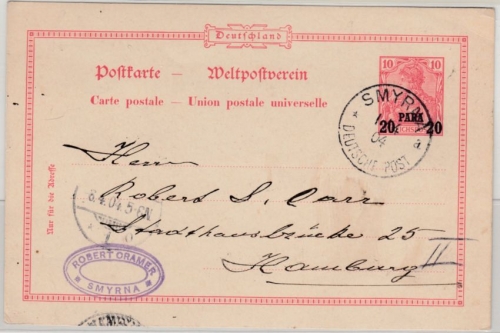 Deutschland
Postkarte — Weltpostverein
Carte postale — Union postale universelle
10 10
20 PARA 20
SMYRNA
04
a
DEUTSCHE POST
Nur für die Adresse
Herrn
Robert S. Carr
Stadthausbrücke 25
Hamburg II
8.4.04.5-6N
ROBERT CRAMER
SMYRNA